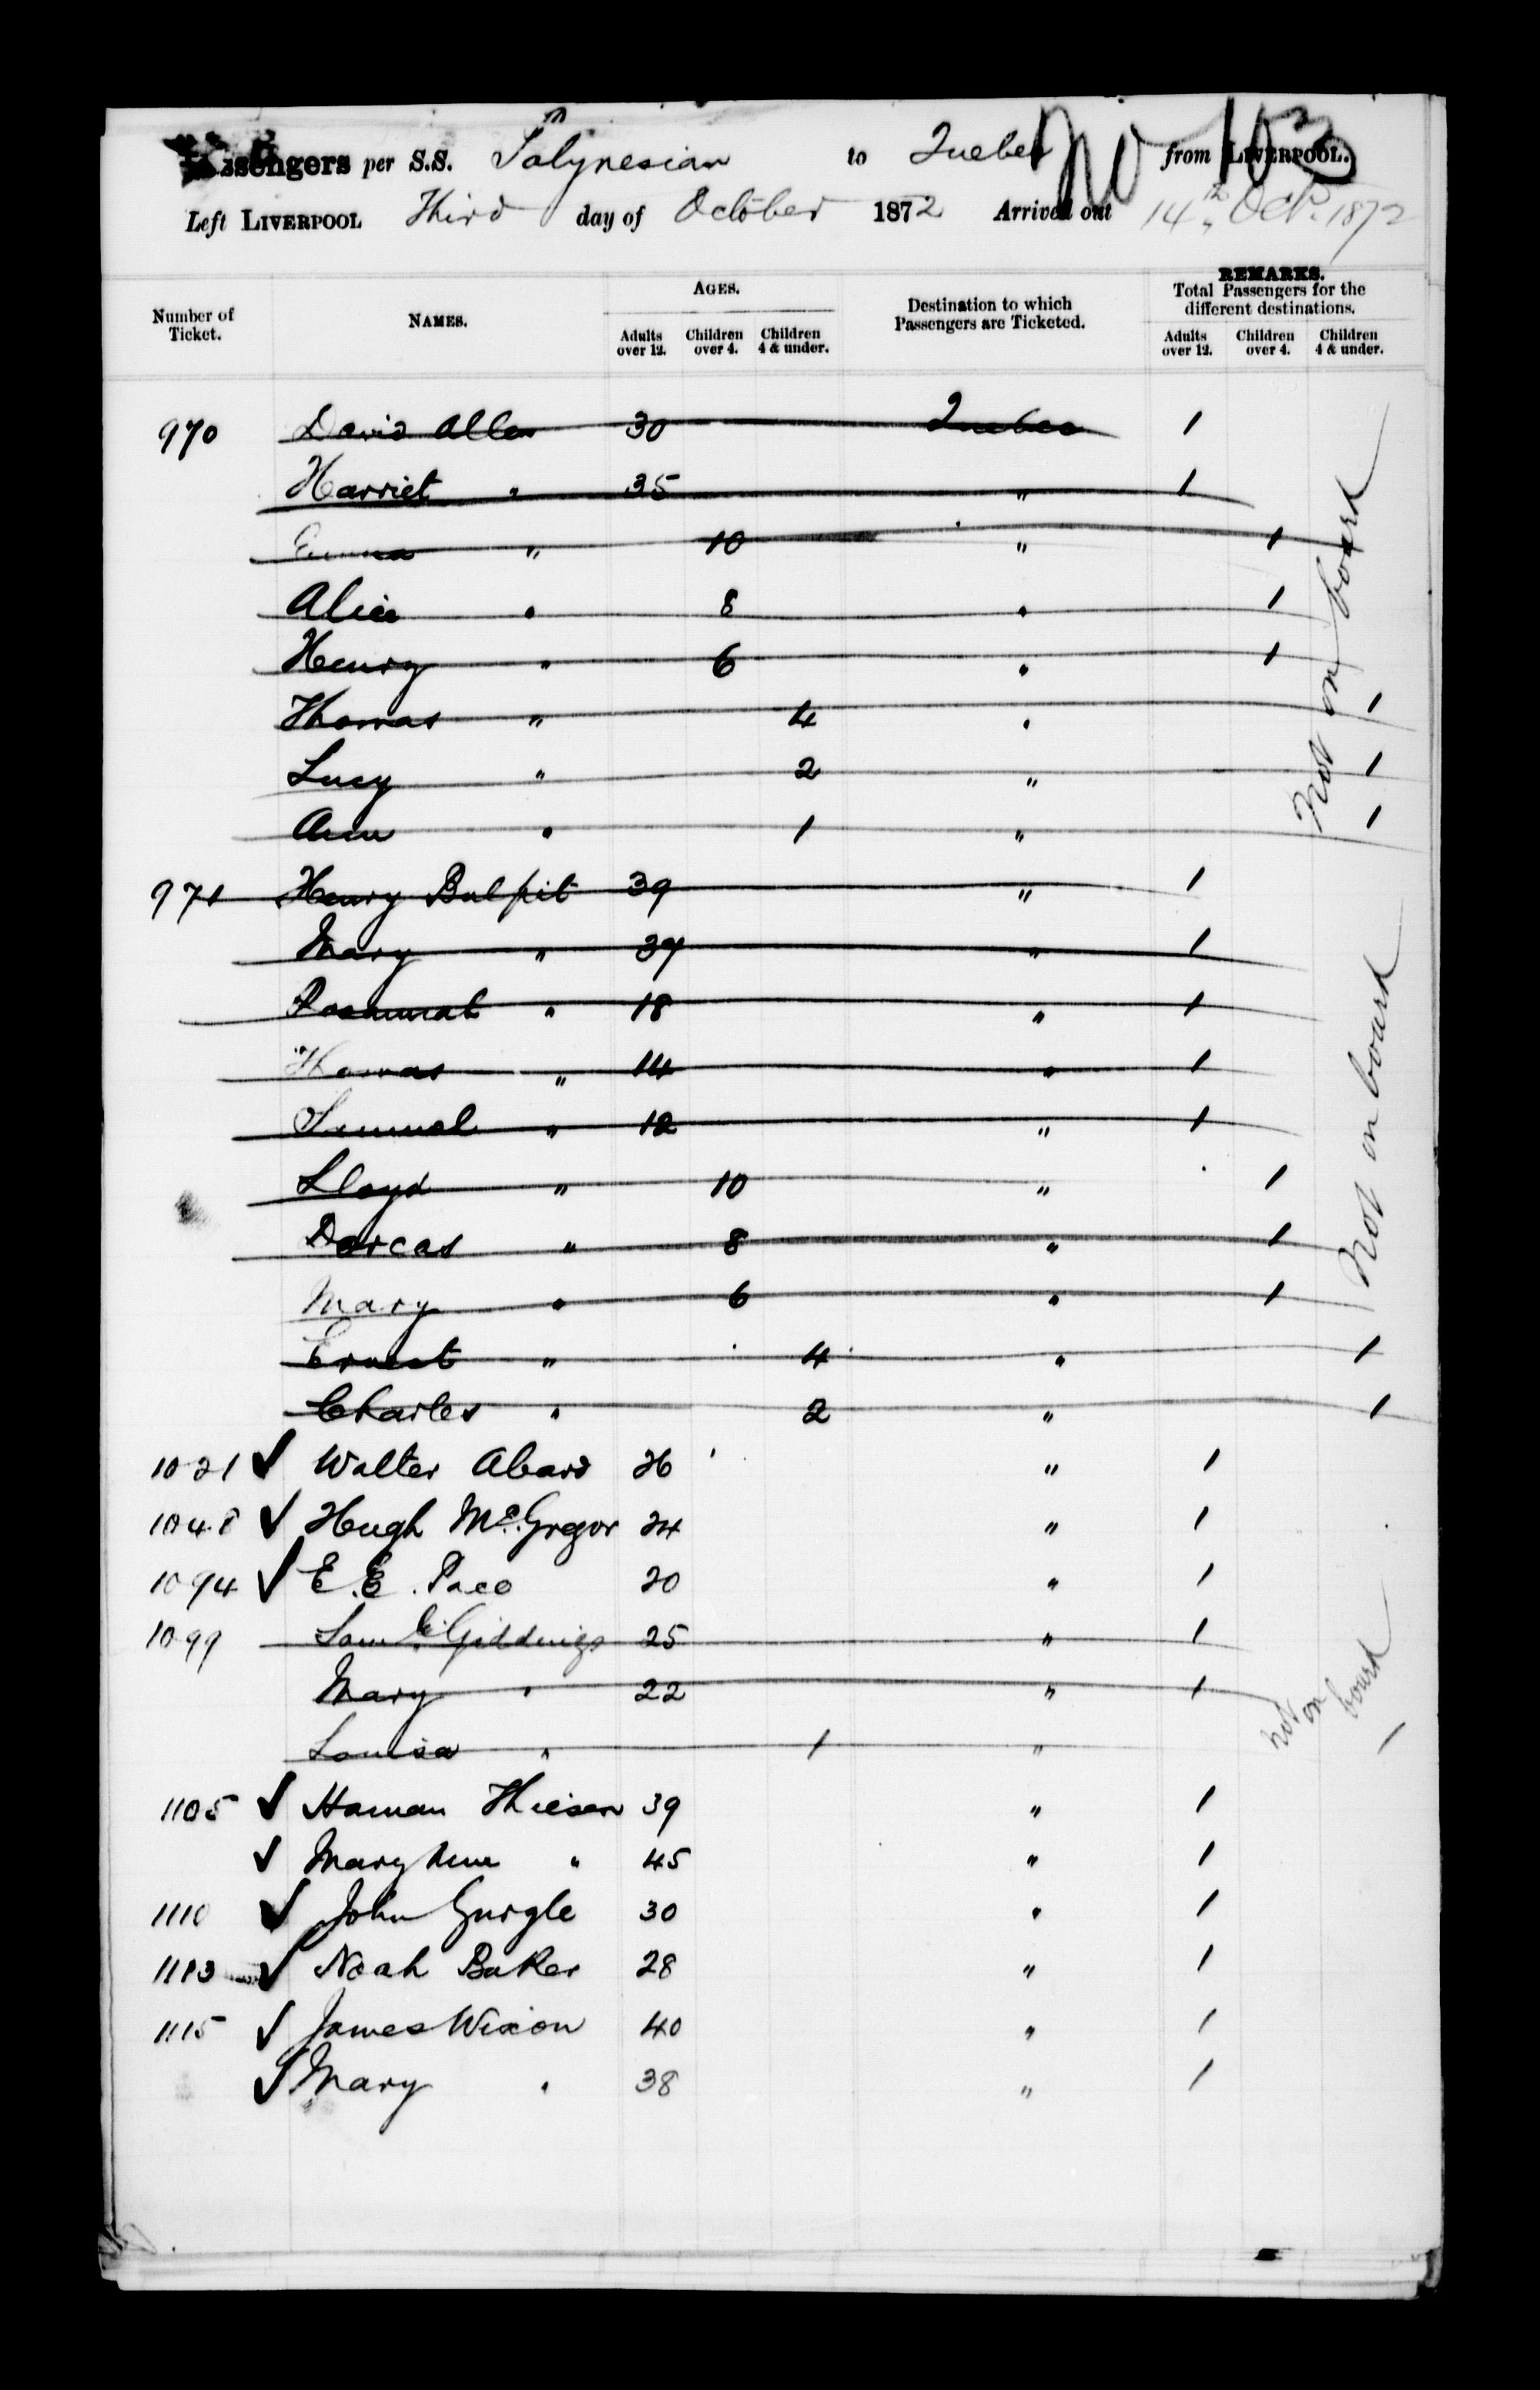 Passengers per S.S. Polynesian to Quebec from LIVERPOOL.
No 103
Left LIVERPOOL Third day of October 1872 Arrived out 14th Octr. 1872
Number of Ticket. NAMES. AGES. Destination to which Passengers are Ticketed. REMARKS. Total Passengers for the different destinations.
Adults over 12. Children over 4. Children 4 & under. Adults over 12. Children over 4. Children 4 & under.
970 David Allen 30 Quebec 1
Harriet " 35 " 1
Emma " 10 " 1
Alice " 8 " 1
Henry " 6 " 1
Thomas " 4 " 1
Lucy " 2 " 1
Ann " 1 " 1
Not on board
971 Henry Bulpit 39 " 1
Mary " 39 " 1
Rosannah " 18 " 1
Thomas " 14 " 1
Samuel " 12 " 1
Lloyd " 10 " 1
Dorcas " 8 " 1
Mary " 6 " 1
Ernest " 4 " 1
Charles " 2 " 1
Not on board
1021 ✓ Walter Abard 26 " 1
1048 ✓ Hugh McGregor 24 " 1
1094 ✓ E. E. 20 " 1
1099 Saml Giddings 25 " 1
Mary " 22 " 1
Louisa " 1 " 1
not on board
1105 ✓ Haman Thiesen 39 " 1
✓ Mary Ann " 45 " 1
1110 ✓ John Gurgle 30 " 1
1113 ✓ Noah Baker 28 " 1
1115 ✓ James Wixon 40 " 1
✓ Mary " 38 " 1